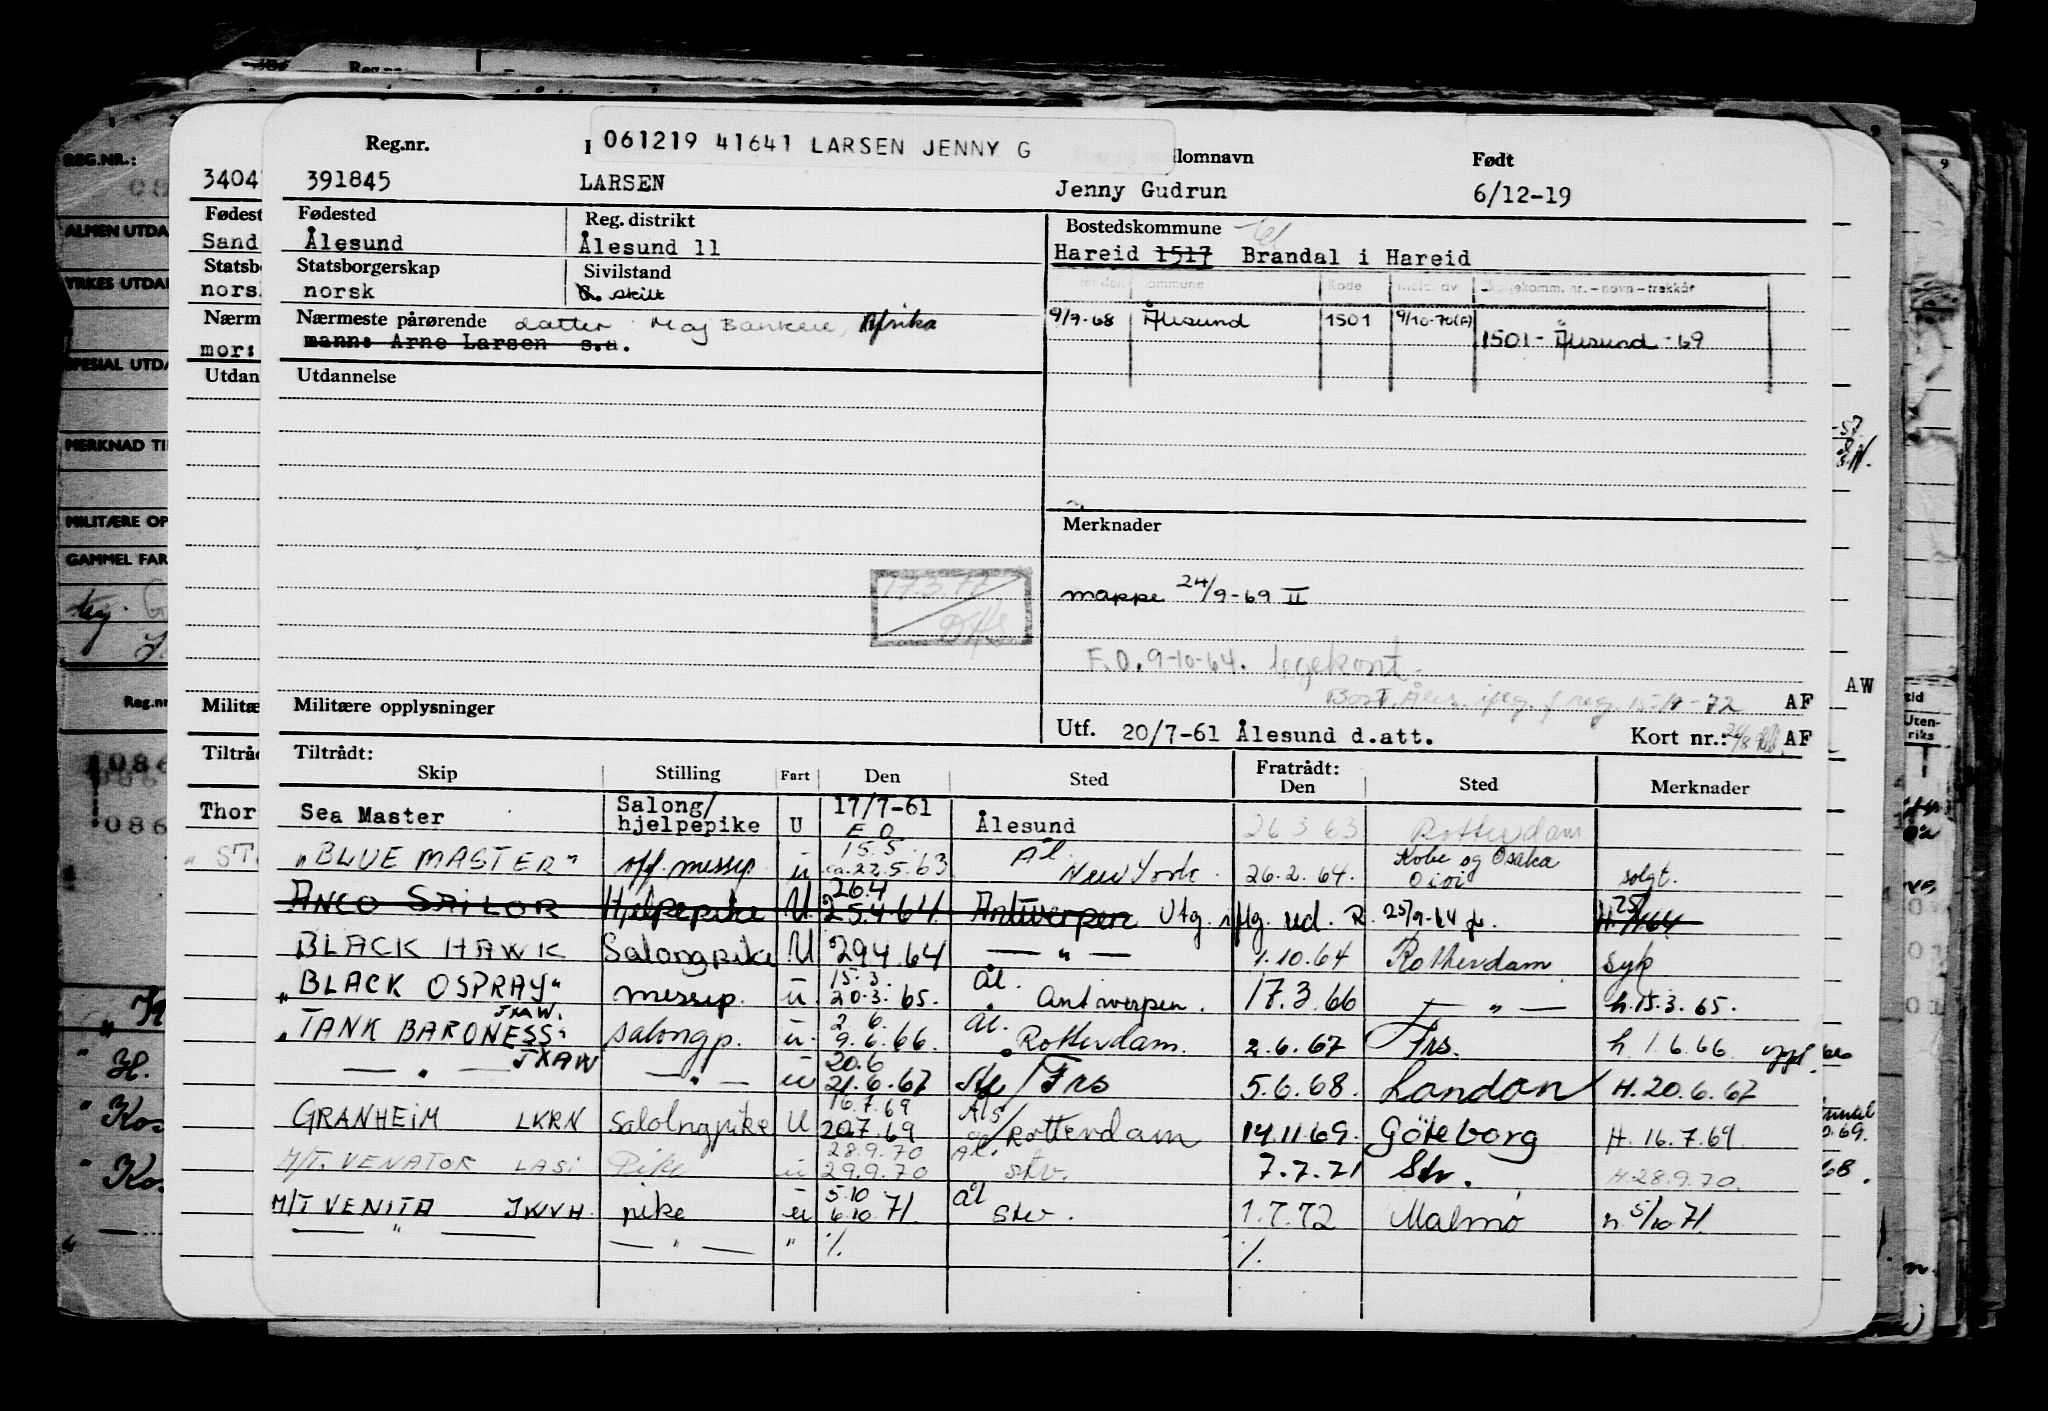 061219 41641 LARSEN JENNY G
Reg.nr.
lomnavn
Født
3404
391845
LARSEN
Jenny Gudrun
6/12-19
Fødest
Fødested
Reg. distrikt
Bostedskommune
Sand
Ålesund
Ålesund 11
Hareid 1517 Brandal i Hareid
Statsb
Statsborgerskap
Sivilstand
nors
norsk
skilt
Kode
nr. – navn – trekkår
Nærm
Nærmeste pårørende datter: Maj Bankele, Afrika
9/9-68 Ålesund 1501 9/10-70(A)
mor:
mann: Arne Larsen s.a.
1501 - Ålesund - 69
Utdan
Utdannelse
Merknader
17.3.72
mappe 24/9-69 II
F.O. 9-10-64. legekont.
AW
AF
Militæ
Militære opplysninger
Utf. 20/7-61 Ålesund d.att.
Kort nr.:
AF
Tiltråd
Tiltrådt:
Fratrådt:
Skip Stilling Fart Den Sted Den Sted Merknader
Thor
Sea Master Salong/ hjelpepike U 17/7-61 F.O. Ålesund 26 3 63 Rotterdam
"BLUE MASTER" off. messep. u 15.5. ca. 22.5.63 Ål. New York. 26.2.64. Kobe og Osaka solgt.
ANCO SAILOR Hjelpepike U 26.4 25.4.64 Antwerpen Utg. iflg. red. R. 25/9-64
BLACK HAWK Salongpike U 29.4.64 — " — 1.10.64 Rotterdam syk
"BLACK OSPRAY" messep. u. 15.3. 20.3.65. Ål. Antwerpen. 17.3.66 — " — h. 15.3.65.
"TANK BARONESS" JXAW. salongp. u. 2.6. 9.6.66. Ål. Rotterdam. 2.6.67 Frs. h 1.6.66 oppl.
— " — JXAW — " — u 20.6 21.6.67 Frs 5.6.68. London H. 20.6.67
GRANHEIM LKRN Salolngpike U 16.7.69 20.7.69 Åls/Rotterdam 14.11.69. Göteborg H. 16.7.69.
M/T. VENATOR LASI Pike u 28.9.70 29.9.70 Ål. Stv. 7.7.71 Stv. H. 28.9.70.
M/T VENITA JXVH. pike u 5.10 6.10.71. Ål Stv. 1.7.72 Malmø h. 5/10 71.
— " — — " — " %. %.
REG.NR.:
ALMEN UTDA
YRKES UTDA
SPESIAL UTDA
MERKNAD TI
MILITÆRE OP
GAMMEL FAR
Reg.nr
086
086
"H.
"Kos
"Ko
Uten-
riks